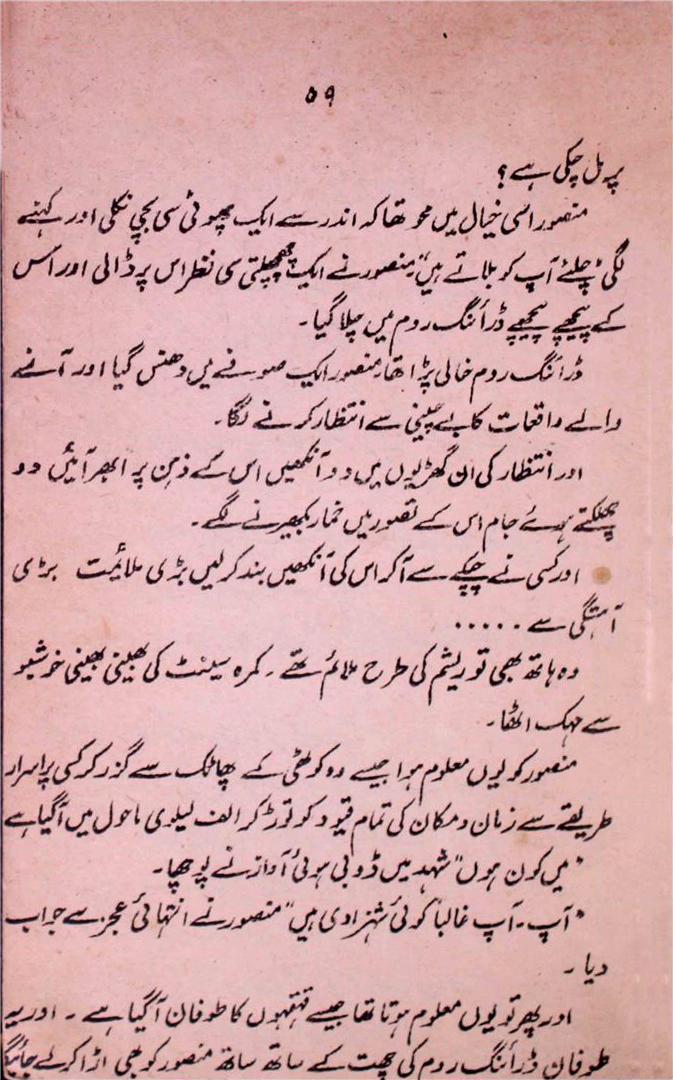 ۵۹
پر مل چکی ہے؟
منصور اسی خیال میں محو تھا کہ اندر سے ایک چھوٹی سی بچی نکلی اور کہنے
لگی "چلئے آپ کو بلاتے ہیں" منصور نے ایک چھچھلتی سی نظر اس پر ڈالی اور اس
کے پیچھے پیچھے ڈرائنگ روم میں چلا گیا۔
ڈرائنگ روم خالی پڑا تھا۔ منصور ایک صوفے میں دھنس گیا اور آنے
والے واقعات کا بے چینی سے انتظار کرنے لگا۔
اور انتظار کی ان گھڑیوں میں دو آنکھیں اس کے ذہن پر ابھر آئیں دو
چھلکتے ہوئے جام اس کے تصور میں خمار بکھیرنے لگے۔
اور کسی نے چپکے سے آکر اس کی آنکھیں بند کر لیں بڑی ملائمت بڑی
آہستگی سے .....
وہ ہاتھ بھی تو ریشم کی طرح ملائم تھے۔ کمرہ سینٹ کی بھینی بھینی خوشبو
سے مہک اٹھا۔
منصور کو یوں معلوم ہوا جیسے وہ کوٹھی کے پھاٹک سے گزر کر کسی پراسرار
طریقے سے زمان و مکان کی تمام قیود کو توڑ کر الف لیلوی ماحول میں آگیا ہے
"میں کون ہوں" شہد میں ڈوبی ہوئی آواز نے پوچھا۔
"آپ۔ آپ غالباً کوئی شہزادی ہیں" منصور نے انتہائی عجز سے جواب
دیا۔
اور پھر تو یوں معلوم ہوتا تھا جیسے قہقہوں کا طوفان آگیا ہے۔ اور یہ
طوفان ڈرائنگ روم کی چھت کے ساتھ ساتھ منصور کو بھی اڑا کر لے جائیگا